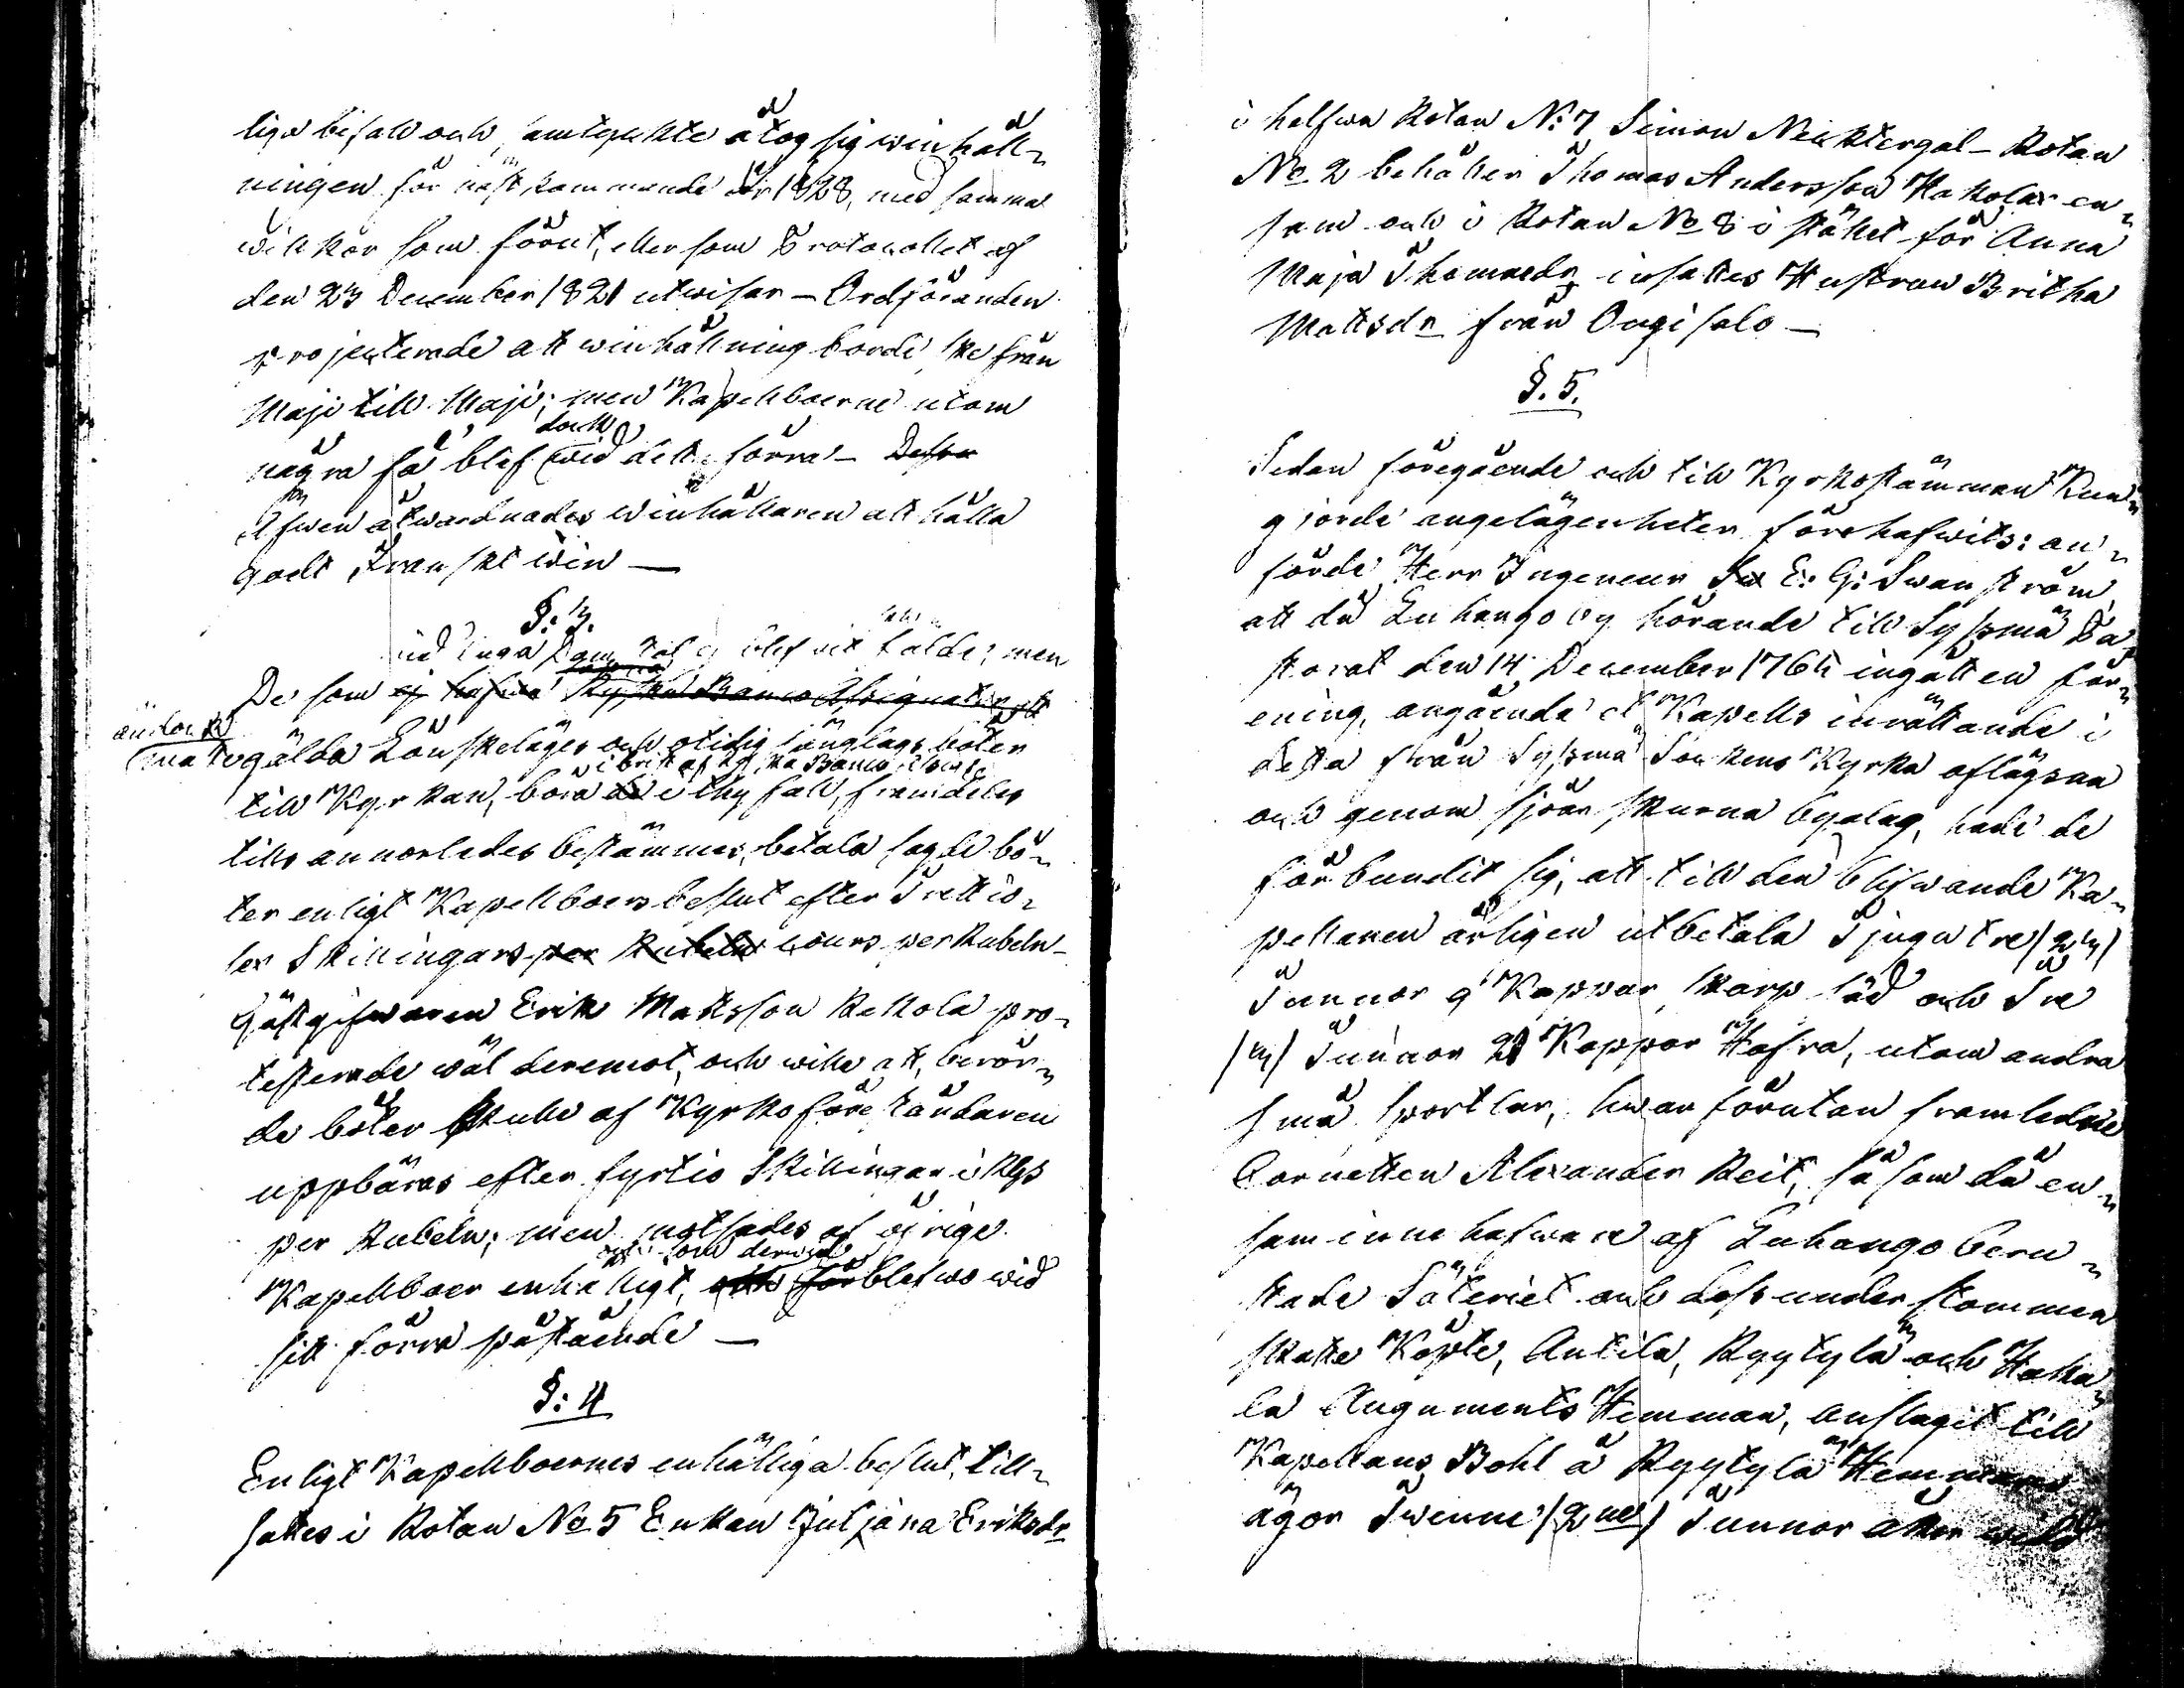 liga bifall och samtyckte åtog sig winhåll-
ningen för nästkommande år 1828, med samma
willkor som förut, eller som Protocollet af
den 23 December 1821 utwisar – Ordföranden
projecterade att winhållning borde ske från
Maji till Maji; men Kapellboerne utom
några få blef dock wid dett förra – Dessa
Äfwen åtwarnades Winhållaren att hålla
godt Franskt win —
§: 3.
wid inga tal ej blef talde; men
De som ej hafwa Ryska Banco Assignater att
ändock
måtte gälda Lönskeläges och otidig sänglags böter
i brist af Ryska Banco
till Kyrkan, böra i thy fall, framdeles
tills annorledes bestämmes, betala sagde bö-
ter enligt Kapellboers beslut efter Trettio-
sex Skillingars per Rubeln cours per Rubeln –
Gästgifwaren Erik Mattsson Rekola pro-
testerade wäl deremot, och wille att, berör-
de böter skulle af Kyrkoföreståndaren
uppbäras efter fyrtio Skillingar i Rgs
per Rubeln; men motsades af öfrige
som derwid
Kapellboer enhälligt, och förblefwo wid
sitt förra påstående —
§: 4
Enligt Kapellboernes enhälliga beslut, till-
sattes i Rotan No 5 Enkan Juljana Eriksdr
i halfwa Rotan No 7 Simon Necktergal – Rotan
No 2 behåller Thomas Andersson Hakolax en-
sam och i Rotan No 8 i stället för Anna
Maja Thomasdr insattes Hustrun Britha
Mattsdr från Ongisalo —
§. 5.
Sedan föregående och till Kyrkostämman Kun-
gjorde angelägenheter förehafwits: an-
förde Herr Ingeneur Sw E: G: Swanström,
att då Luhango by hörande till Sysmä Pa-
storat den 14 December 1764 ingått en för-
ening, angående et Kapells inrättande i
detta från Sysmä Sockens Kyrka aflägsna
och genom sjöar skurna byalag, hade de
förbundit sig, att till den blifwande Ka-
pellanen årligen utbetala Tjugu tre /23/
Tunnor 9 Kappar skarp säd och Tre
/3/ Tunnor 21 Kappar Hafra, utom andra
små sportlar, hwarförutan framledne
Cornetten Alexander Reit, såsom då en-
sam innehafware af Luhango beru-
stade Säteriet och dess under stommen
skatte Köyste, Antila, Ryytylä och Hakka-
la Auguments Hemman, anslagit till
Kapellans Bohl å Ryytylä Hemmans
ägor Twenne /2ne/ Tunnor åker